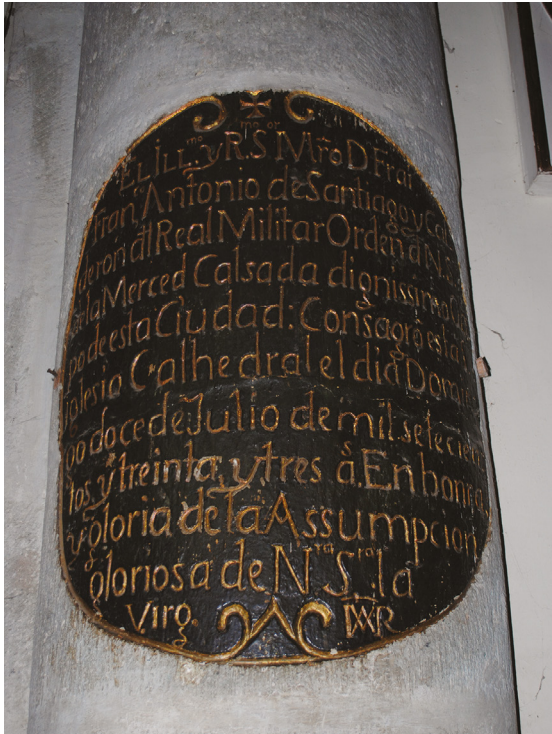 EL ILL.mo y R.S Mro. D Frai
Fran. Antonio de Santiago y Cal
deron dl Real Militar Orden d N. S.
d la Merced Calsada dignissimo
po de esta Ciudad: Consagrò esta
Iglesia Calhedral el dia Domin
go doce de Julio de mil setecien
tos, y treinta, y tres as. En honra,
y gloria de la Assumpcion
gloriosa de Nra Sra la
Virg. MAR